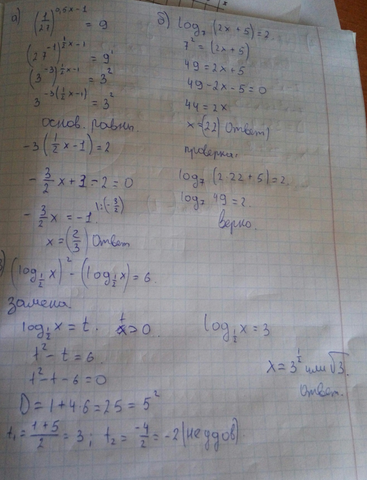 а) (1/27)^(0,5x-1) = 9
(27^(-1))^(1/2x-1) = 9^1
(3^(-3))^(1/2x-1) = 3^2
3^(-3(1/2x-1)) = 3^2
основ. равны.
-3(1/2x-1)=2
-3/2x+3-2=0
-3/2x=-1 |:(-3/2)
x=(2/3) Ответ
б) log₇(2x+5)=2.
7^2=(2x+5)
49=2x+5
49-2x-5=0
44=2x
x=(22) Ответ)
проверка:
log₇(2·22+5)=2.
log₇49=2.
верно.
) (log_(1/2)x)^2-(log_(1/2)x)=6.
замена
log_(1/2)x=t. t>0.
t^2-t=6.
t^2-t-6=0
D=1+4·6=25=5^2
t₁=(1+5)/2=3; t₂=-4/2=-2(не удов)
log_(1/2)x=3
x=3^(1/2) или √3.
Ответ.